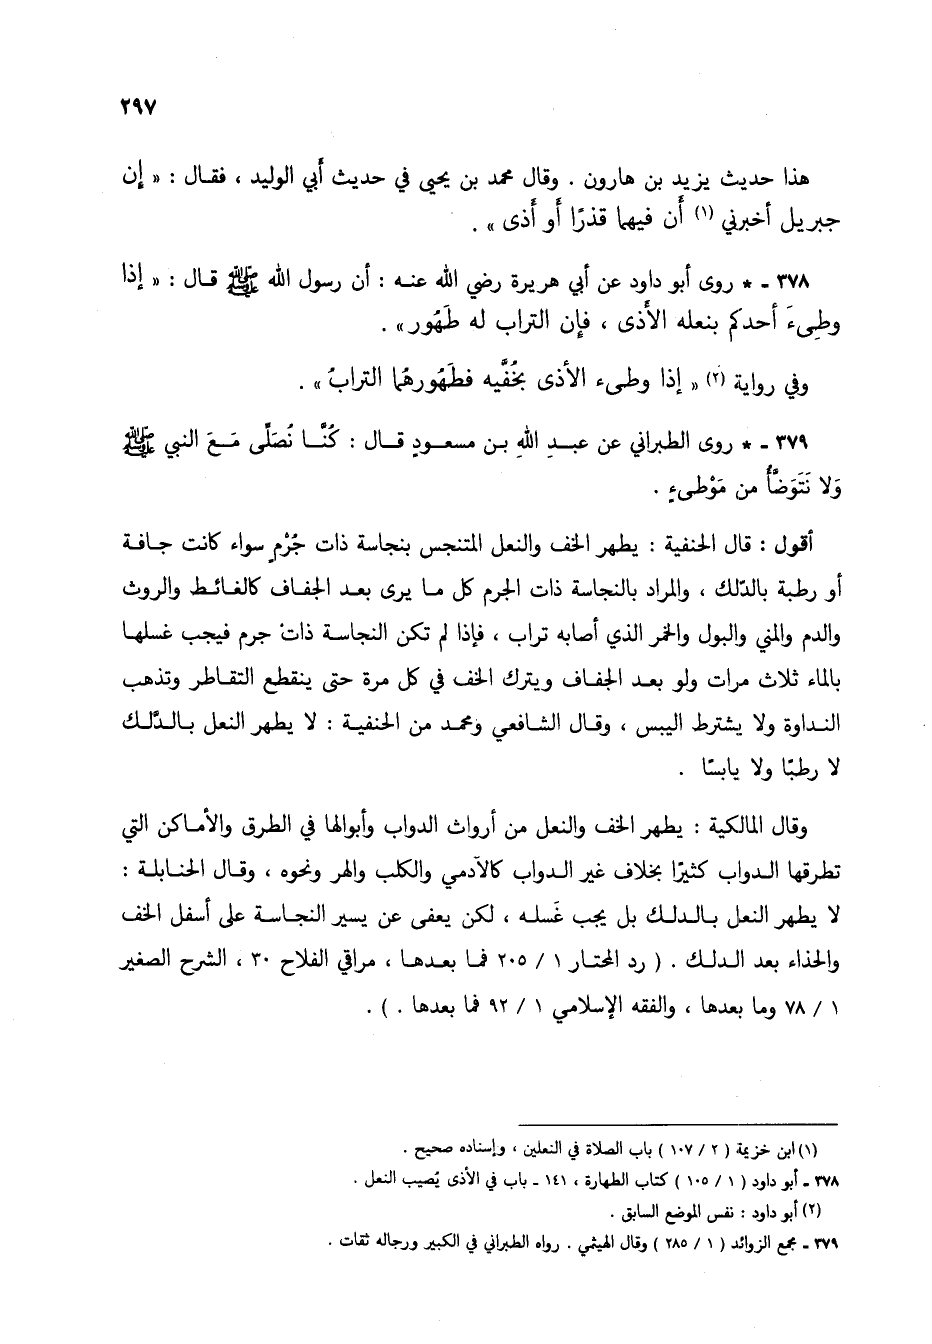 ٢٩٧
هذا حديث يزيد بن هارون . وقال محمد بن يحيى في حديث أبي الوليد ، فقال : « إن
جبريل أخبرني (١) أن فيهما قذرًا أو أذى » .
٣٧٨ - * روى أبو داود عن أبي هريرة رضي الله عنه : أن رسول الله ﷺ قال : « إذا
وطِىءَ أحدكم بنعله الأذى ، فإن التراب له طَهُور» .
وفي رواية (٢) « إذا وطىء الأذى بخُفَّيه فطَهُورهُما الترابُ » .
٣٧٩ - * روى الطبراني عن عبدِ اللهِ بن مسعودٍ قال : كُنَّا نُصَلَّى مَعَ النبي ﷺ
وَلا نَتَوَضَّأُ من مَوْطىءٍ .
أقول : قال الحنفية : يطهر الخف والنعل المتنجس بنجاسة ذات جُرْمٍ سواء كانت جافة
أو رطبة بالدّلك ، والمراد بالنجاسة ذات الجرم كل ما يرى بعد الجفاف كالغائط والروث
والدم والمني والبول والخمر الذي أصابه تراب ، فإذا لم تكن النجاسة ذات جرم فيجب غسلها
بالماء ثلاث مرات ولو بعد الجفاف ويترك الخف في كل مرة حتى ينقطع التقاطر وتذهب
النداوة ولا يشترط اليبس ، وقال الشافعي ومحمد من الحنفية : لا يطهر النعل بالدَّلك
لا رطبًا ولا يابسًا .
وقال المالكية : يطهر الخف والنعل من أرواث الدواب وأبوالها في الطرق والأماكن التي
تطرقها الدواب كثيرًا بخلاف غير الدواب كالآدمي والكلب والهر ونحوه ، وقال الحنابلة :
لا يطهر النعل بالدلك بل يجب غَسله ، لكن يعفى عن يسير النجاسة على أسفل الخف
والحذاء بعد الدلك . ( رد المحتار ١ / ٢٠٥ فما بعدها ، مراقي الفلاح ٣٠ ، الشرح الصغير
١ / ٧٨ وما بعدها ، والفقه الإسلامي ١ / ٩٢ فما بعدها . ) .
(١) ابن خزيمة ( ٢ / ١٠٧ ) باب الصلاة في النعلين ، وإسناده صحيح .
٣٧٨ - أبو داود ( ١ / ١٠٥ ) كتاب الطهارة ، ١٤١ - باب في الأذى يُصيب النعل .
(٢) أبو داود : نفس الموضع السابق .
٣٧٩ - مجمع الزوائد ( ١ / ٢٨٥ ) وقال الهيثمي . رواه الطبراني في الكبير ورجاله ثقات .